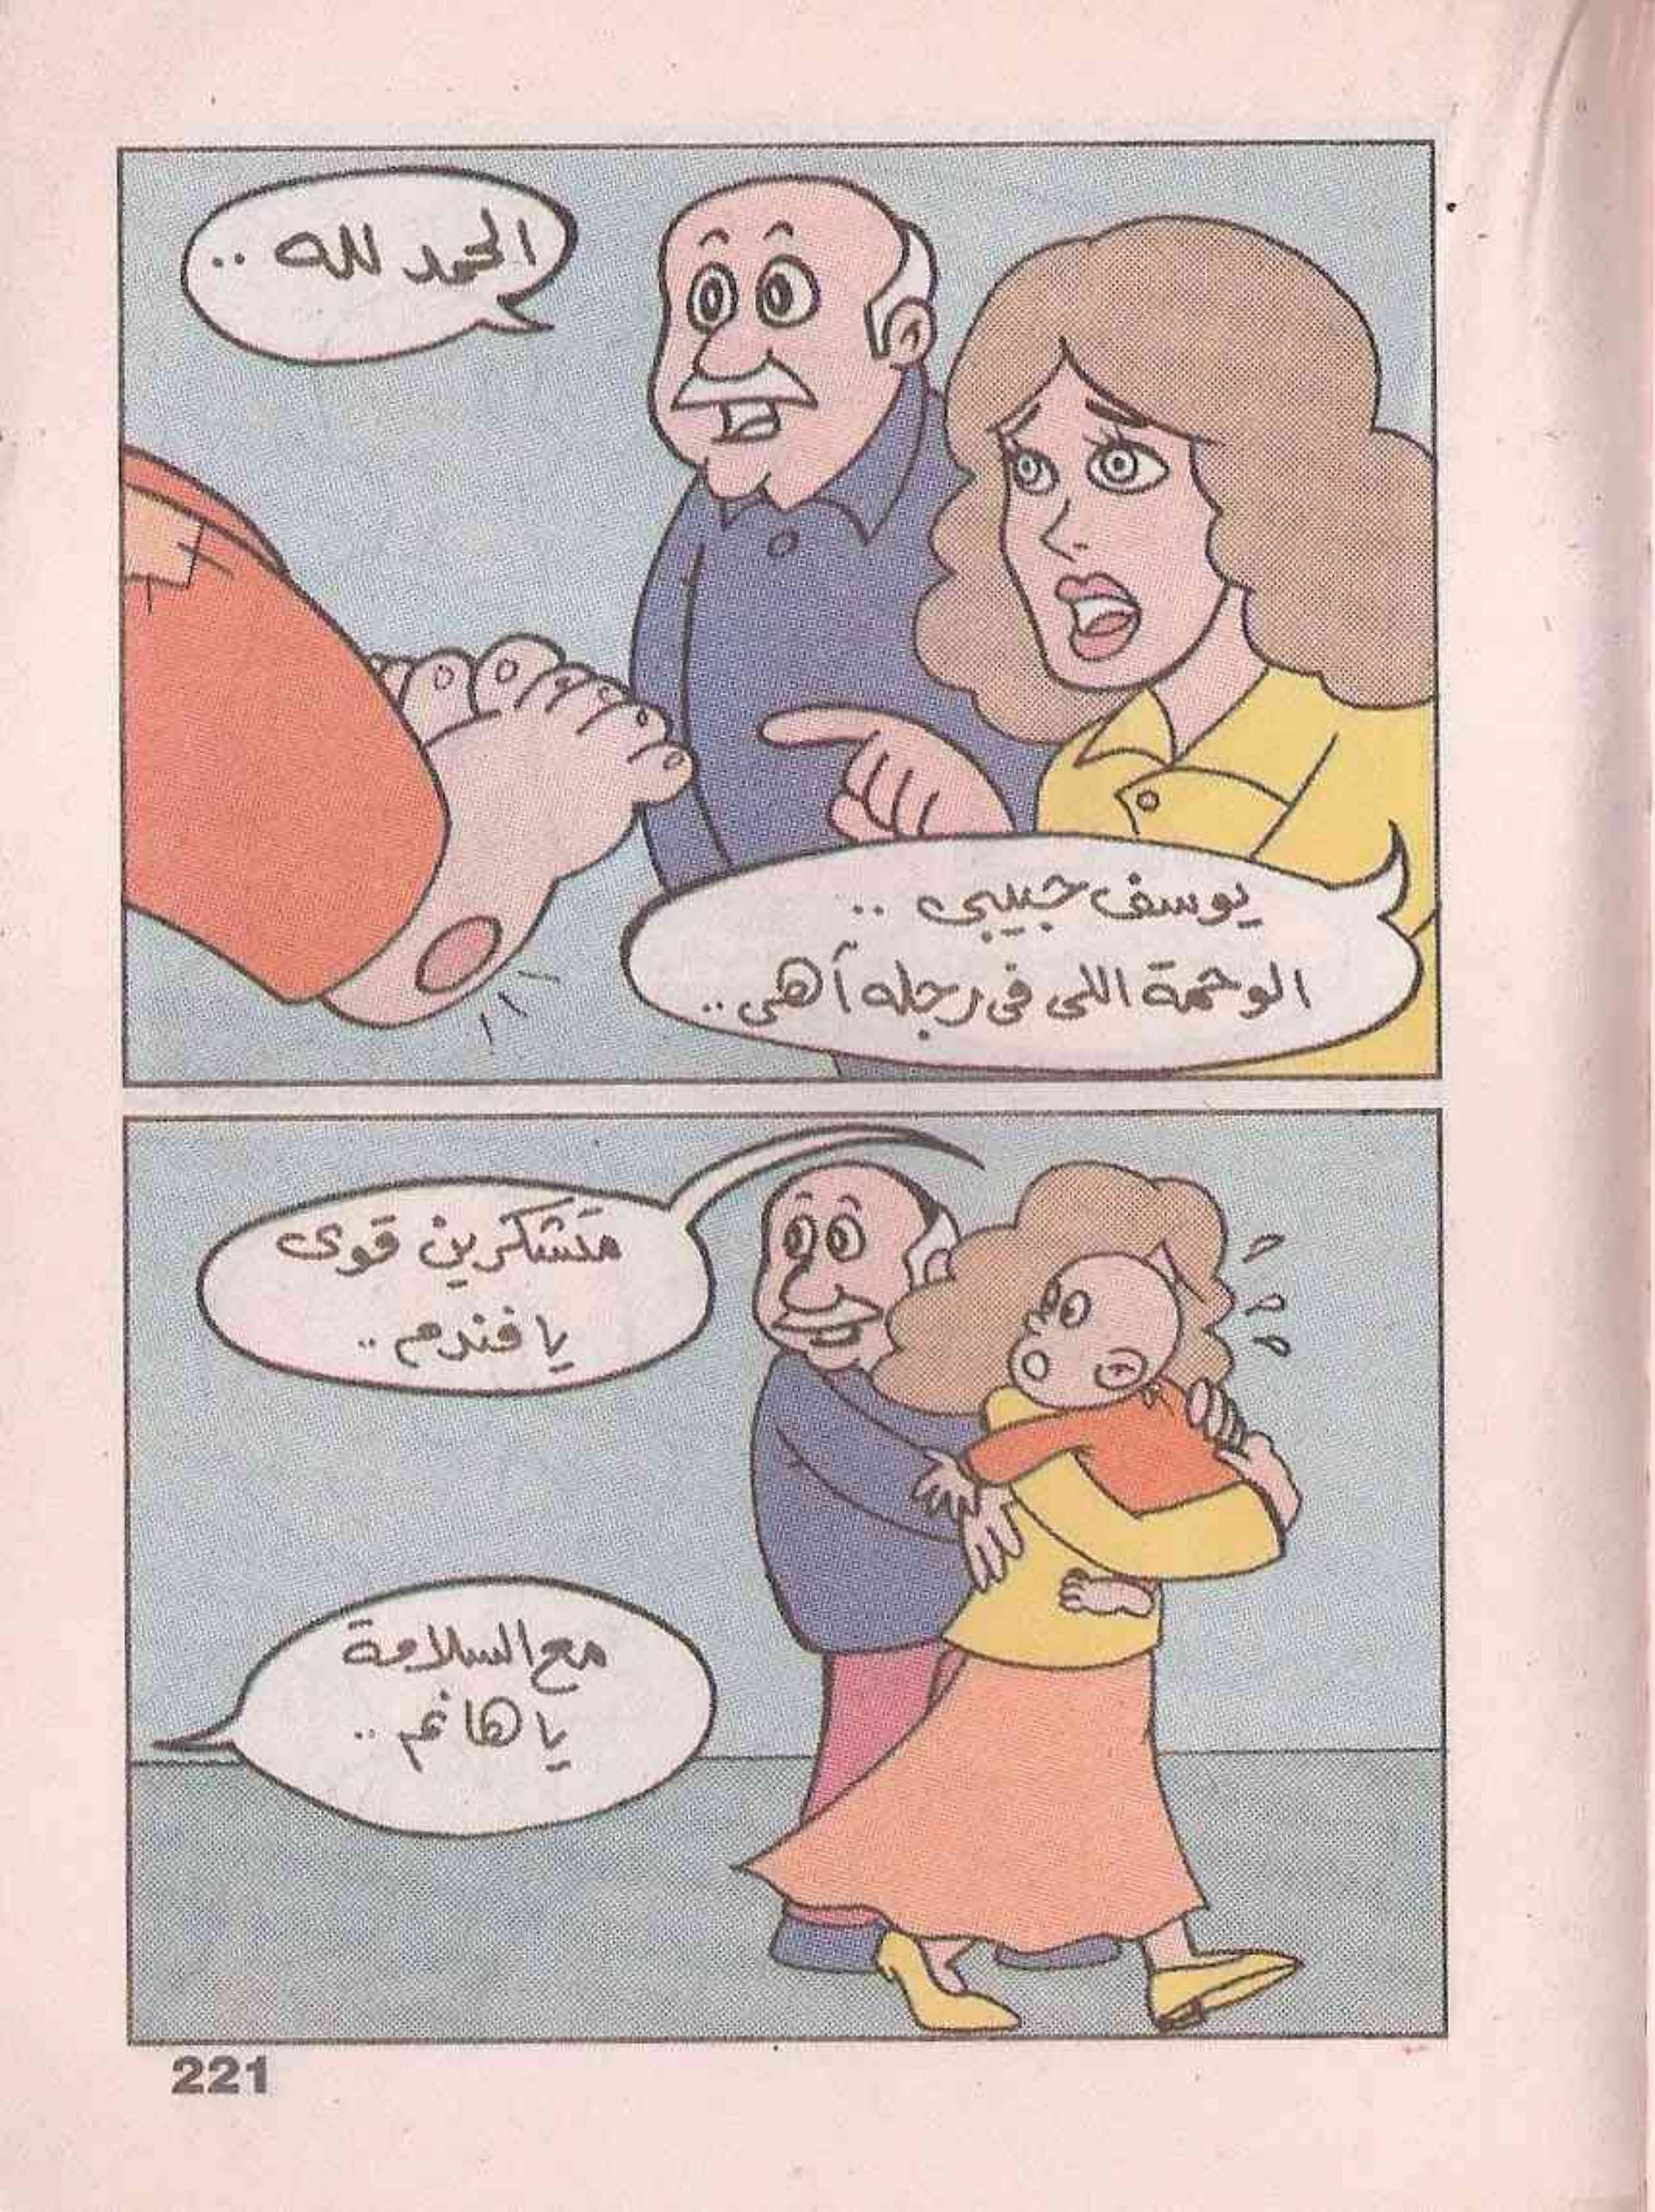 الحمد لله ..
يوسف حبيبى ..
الوحمة اللى فى رجله آهى ..
متشكرين قوى
يا فندم ..
مع السلامة
يا هانم ..
221